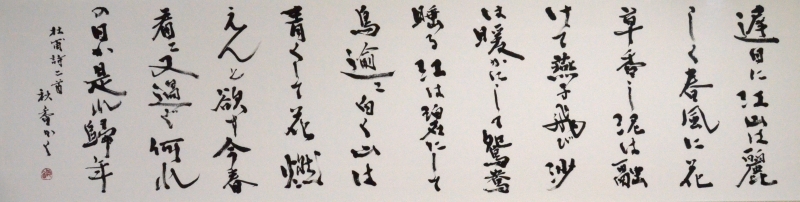 遲日に江山は麗
しく春風に花
草香し泥は融
けて燕子飛び沙
は暖かにして鴛鴦
睡る江は碧にして
鳥逾〻白く山は
青くして花燃
えんと欲す今春
看〻又過ぐ何れ
の日か是れ歸年
杜甫詩二首
かく